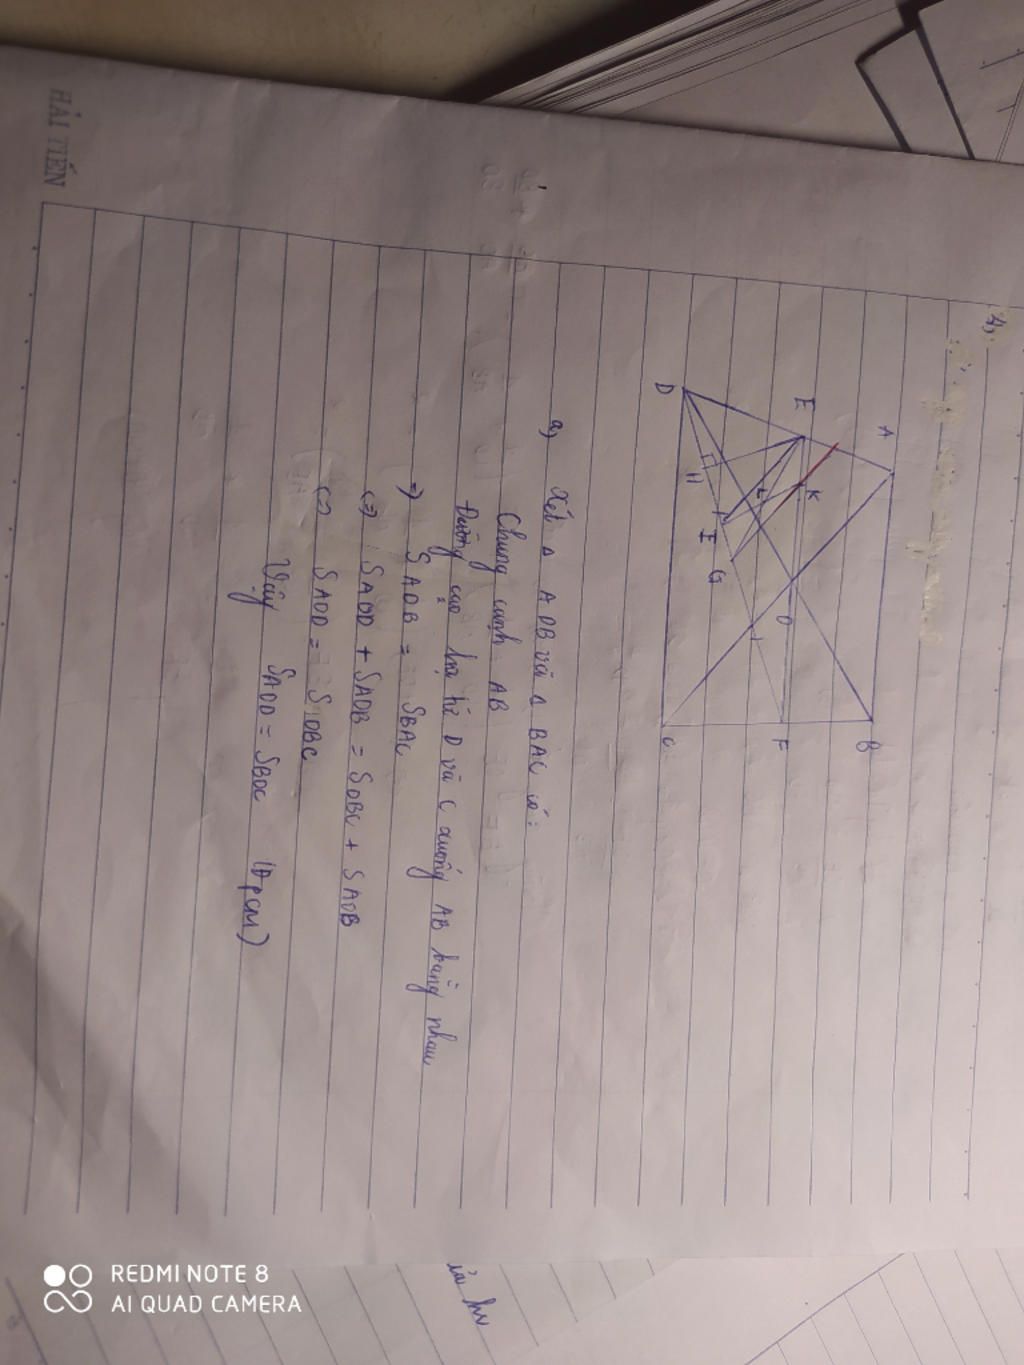 HẢI TIẾN
4,
A
B
E
K
O
F
L
D
H
I
G
C
a, Xét Δ ADB và Δ BAC có:
Chung cạnh AB
Đường cao hạ từ D và C xuống AB bằng nhau
=) SADB = SBAC
(=) SAOD + SAOB = SOBC + SAOB
(=) SAOD = SOBC
Vậy SAOD = SBOC (Đpcm)
REDMI NOTE 8
AI QUAD CAMERA